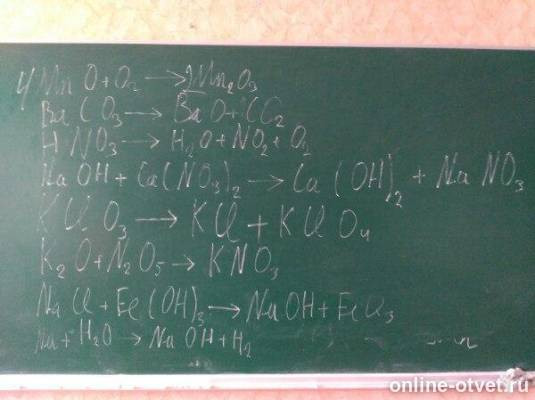 4) MnO + O₂ → 2Mn₂O₃
BaCO₃ → BaO + CO₂
HNO₃ → H₂O + NO₂ + O₂
NaOH + Ca(NO₃)₂ → Ca(OH)₂ + NaNO₃
KClO₃ → KCl + KClO₄
K₂O + N₂O₅ → KNO₃
NaCl + Fe(OH)₃ → NaOH + FeCl₃
Na + H₂O → NaOH + H₂
online-otvet.ru